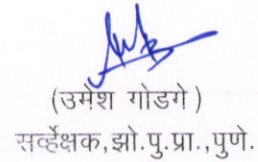 (उमेश गोडगे)
सर्व्हेक्षक,झो.पु.प्रा.,पुणे.